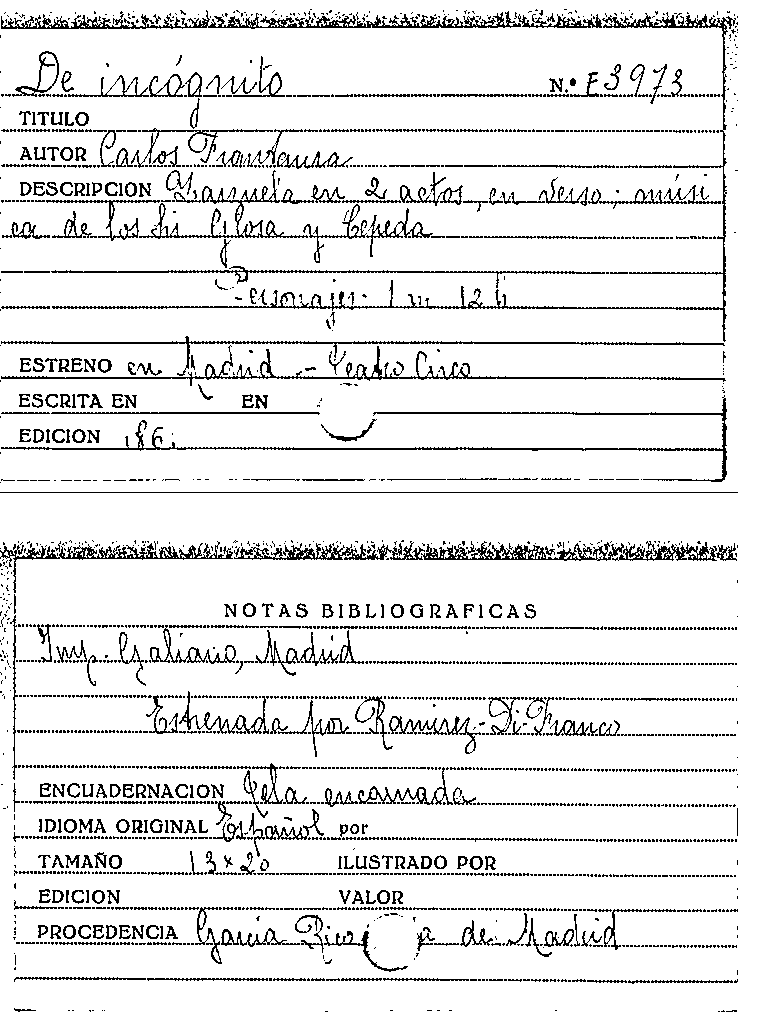 De incógnito N.º F3973
TITULO
AUTOR Carlos Frontaura
DESCRIPCION Zarzuela en 2 actos, en verso; músi
ca de los Glosa y Cepeda
Personajes: 1 m 12 h
ESTRENO en Madrid - Teatro Circo
ESCRITA EN EN
EDICION
NOTAS BIBLIOGRAFICAS
Imp. Galiano, Madrid
Estrenada por Ramirez-Di-Franco
ENCUADERNACION Tela encarnada
IDIOMA ORIGINAL Español por
TAMAÑO 13x20 ILUSTRADO POR
EDICION VALOR
PROCEDENCIA García Rico de Madrid